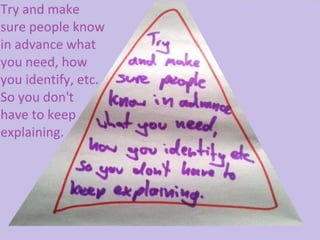 Try and make
sure people know
in advance what
you need, how
you identify, etc.
So you don't
have to keep
explaining.
Try
and make
sure people
know in advance
what you need,
how you identify etc
so you don't have to
keep explaining.